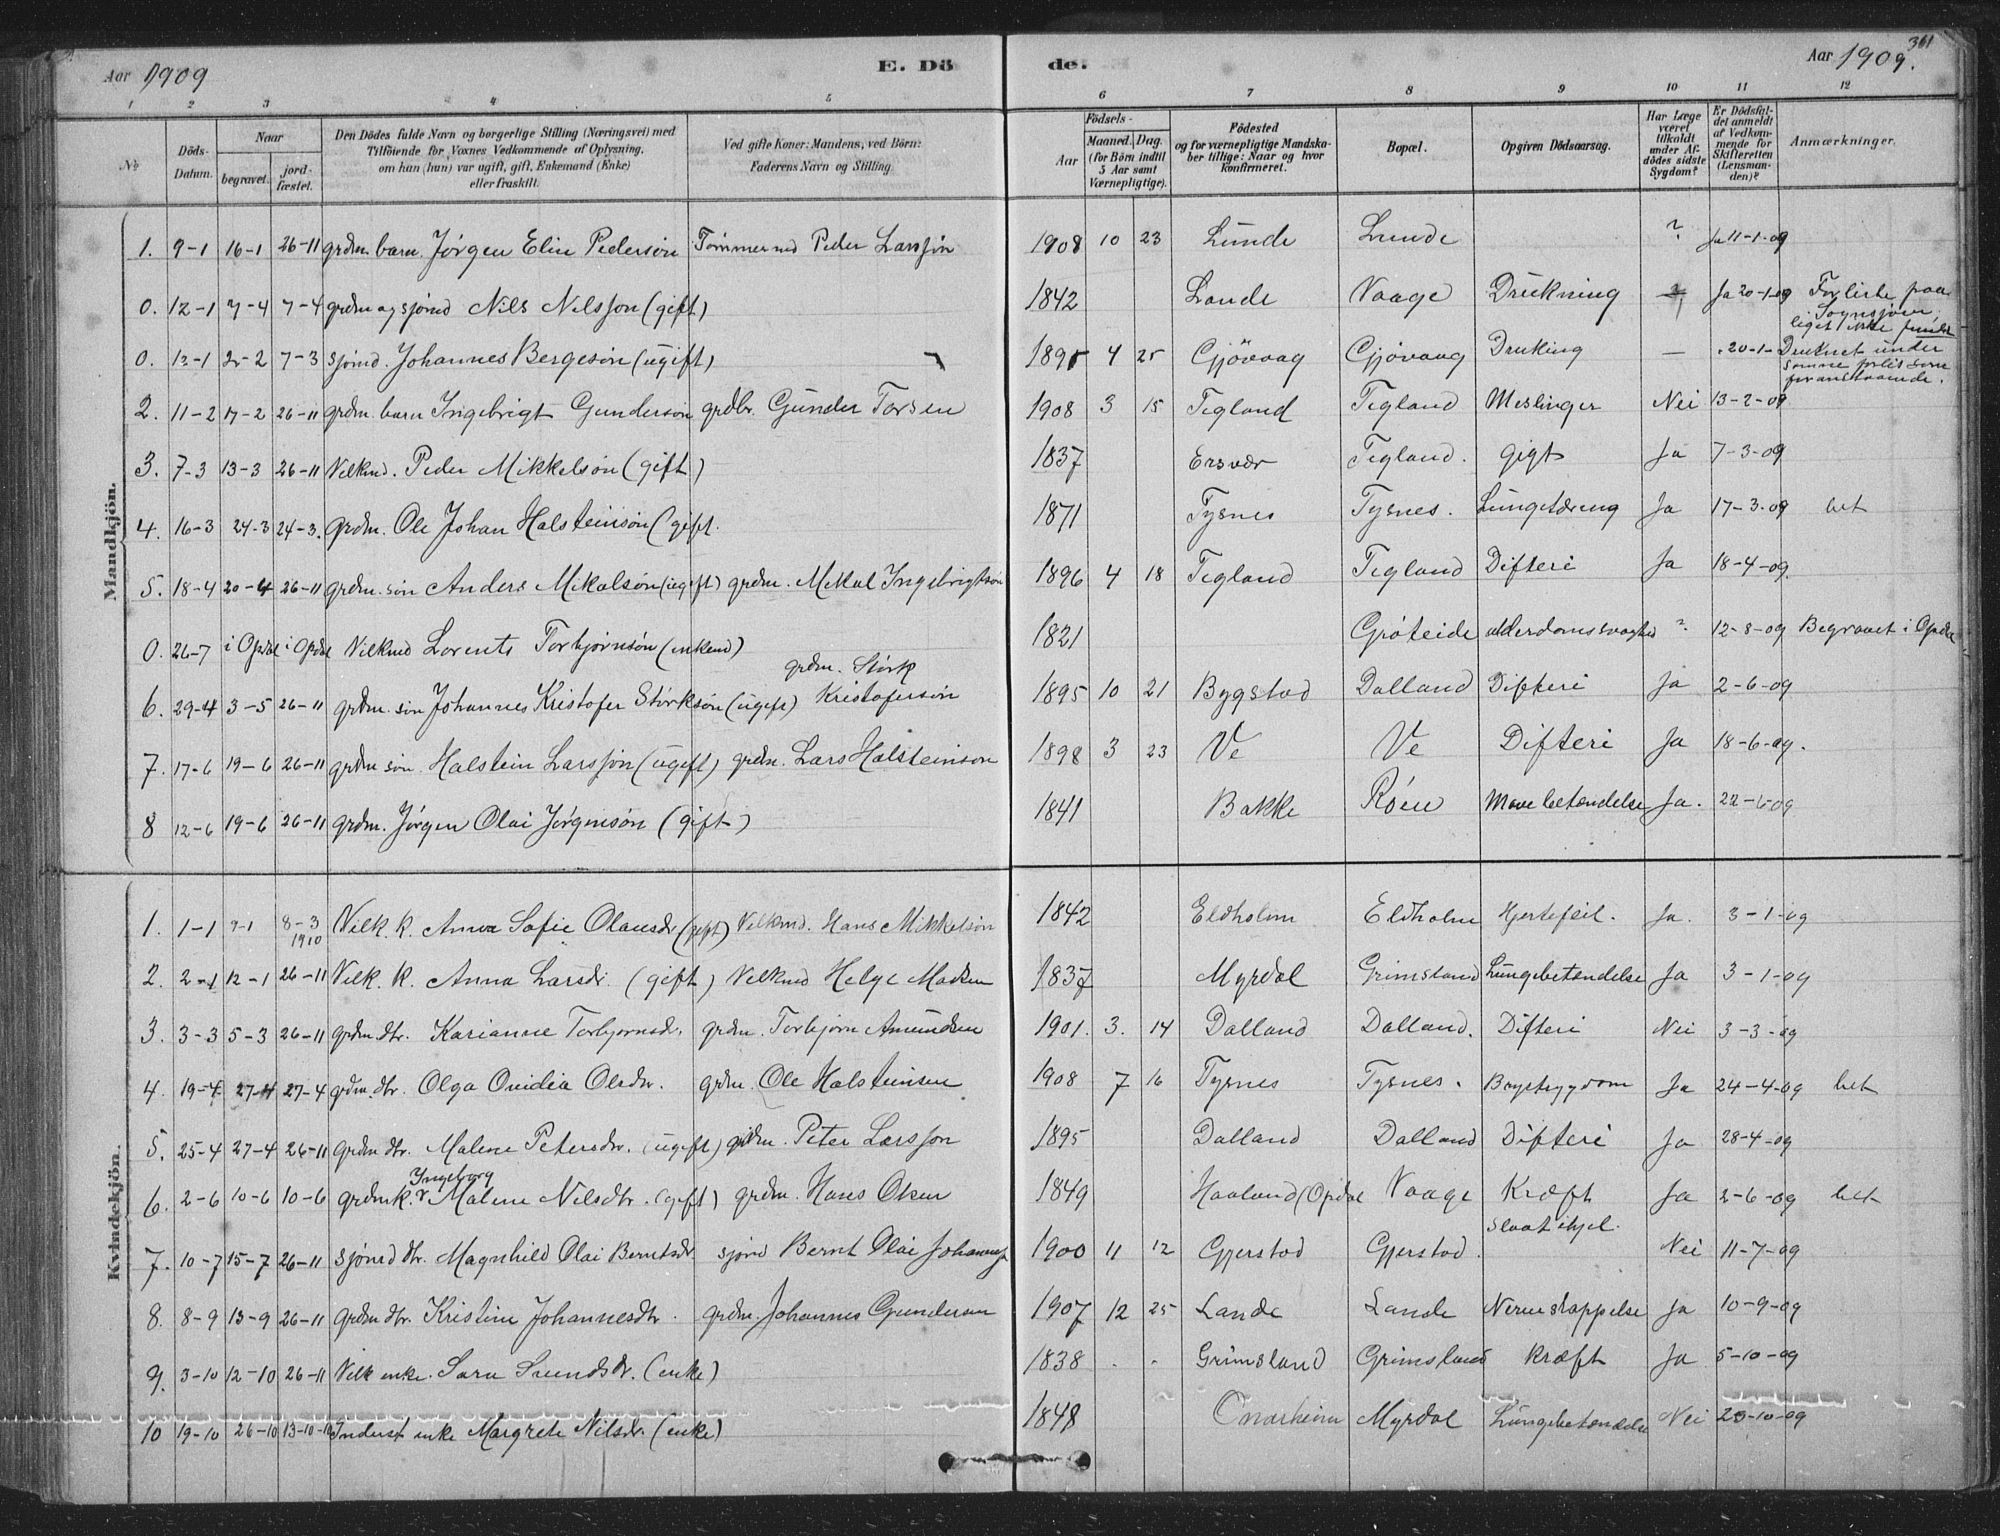 Aar 1909
E. Dö de.
Aar 1909.
361
1 2 3 4 5 6 7 8 9 10 11 12
No
Döds-Datum.
Naar
begravet.
jord-fæstet.
Den Dödes fulde Navn og borgerlige Stilling (Næringsvei) med
Tilföiende for Voxnes Vedkommende af Oplysning,
om han (hun) var ugift, gift, Enkemand (Enke)
eller fraskilt.
Ved gifte Koner: Mandens, ved Börn:
Faderens Navn og Stilling.
Födsels-
Aar
Maaned. Dag.
(for Börn indtil
5 Aar samt
Værnepligtige).
Födested
og for værnepligtige Mandska-
ber tillige: Naar og hvor
konfirmeret.
Bopæl.
Opgiven Dödsaarsag.
Har Læge
været
tilkaldt
under Af-
dödes sidste
Sygdom?
Er Dödsfal-
det anmeldt
af Vedkom-
mende for
Skifteretten
(Lensman-
den)?
Anmærkninger.
Mandkjön.
1. 9-1 16-1 26-11 grdm barn. Jørgen Elin Pedersøn Tømmermd Peder Larssøn 1908 10 23 Lunde Lunde ? Ja 11-1-09
0. 12-1 7-4 7-4 grdm og sjømd Nils Nilsson (gift) 1842 Lande Vaage Drukning Ja 20-1-09 Forliste paa
Sognsjøen,
liget ikke fundet
0. 12-1 2-2 7-3 sjømd. Johannes Bergesøn (ugift) 1895 4 25 Gjövaag Gjövaag Drukning — 20-1- Druknet under
samme forlis som
foranstaaende.
2. 11-2 17-2 26-11 grdm. barn Ingebrigt Gundersøn grdbr. Gunder Torsen 1908 3 15 Tegland Tegland Meslinger Nei 13-2-09
3. 7-3 13-3 26-11 Vilkmd. Peder Mikkelsøn (gift) 1837 Ersvær Tegland. gigt Ja 7-3-09
4. 16-3 24-3 24-3. grdm. Ole Johan Halsteinsøn (gift. 1871 Tysnes Tysnes. Lungetæring Ja 17-3-09 bet
5. 18-4 20-4 26-11 grdm. søn Anders Mikalsøn (ugift) grdm. Mikal Ingebrigtsøn 1896 4 18 Tegland Tegland Difteri Ja 18-4-09.
0. 26-7 i Opdal i Opdal Vilkmd Lorents Torbjørnsøn (enkemd) 1821 Gröteide alderdomssvaghed ? 12-8-09 Begravet i Opdal
6. 29-4 3-5 26-11 grdm. søn Johannes Kristofer Størksøn (ugift) grdm. Størk
Kristofersøn 1895 10 21 Bygstad Dalland Difteri Ja 2-6-09
7. 17-6 19-6 26-11 grdm søn. Halstein Larssøn (ugift) grdm. Lars Halsteinson 1898 3 23 Ve Ve Difteri Ja 18-6-09.
8 12-6 19-6 26-11 grdm. Jørgen Olai Jørgensøn (gift) 1841 Bakke Röen Mavebetændelse Ja. 22-6-09
Kvindekjön.
1. 1-1 9-1 8-3
1910 Vilk. k. Anna Sofie Olausdr (gift) Vilkmd. Hans Mikkelsøn 1842 Eldholm Eldholm Hjertefeil. Ja. 3-1-09
2. 2-1 12-1 26-11 Vilk. k. Anna Larsdr. (gift) Vilkmd Helge Madsen 1837 Myrdal Grimsland Lungebetændelse Ja 3-1-09
3. 3-3 5-3 26-11 grdm. dtr. Karianne Torbjørnsdr. grdm. Torbjørn Amundsen 1901. 3. 14 Dalland Dalland. Difteri Nei 3-3-09
4. 19-4 27-4 27-4 grdm. dtr. Olga Ovidia Olsdr. grdm. Ole Halsteinsen 1908 7 16 Tysnes Tysnes. Brystsygdom Ja 24-4-09 bet
5. 25-4 27-4 26-11 grdm dtr. Malene Petersdr. (ugift) grdm. Peter Larsson 1895 Dalland Dalland Difteri Ja 28-4-09
6. 2-6 10-6 10-6 grdmk. Ingeborg Malene Nilsdtr. (gift) grdm. Hans Olsen 1849 Haaland (Opdal Vaage Kræft Ja 2-6-09 bet
7. 10-7 15-7 26-11 sjømd dtr. Magnhild Olai Berntsdr. sjømd Bernt Olai Johanness 1900 11 12 Gjerstad Gjerstad. slaat ihjel. Nei 11-7-09
8. 8-9 13-9 26-11 grdm dtr. Kristine Johannesdtr. grdm. Johannes Gundersen 1907 12 25 Lande Lande Nerveslappelse Ja 10-9-09
9. 3-10 12-10 26-11 Vilk enke. Sara (enke) 1838 . . Grimsland Grimsland Kræft Ja 5-10-09
10 19-10 26-10 13-10-10 Inderst enke Margrete Nilsdr. (enke) 1848 Onarheim Myrdal Lungebetændelse Nei 23-10-09